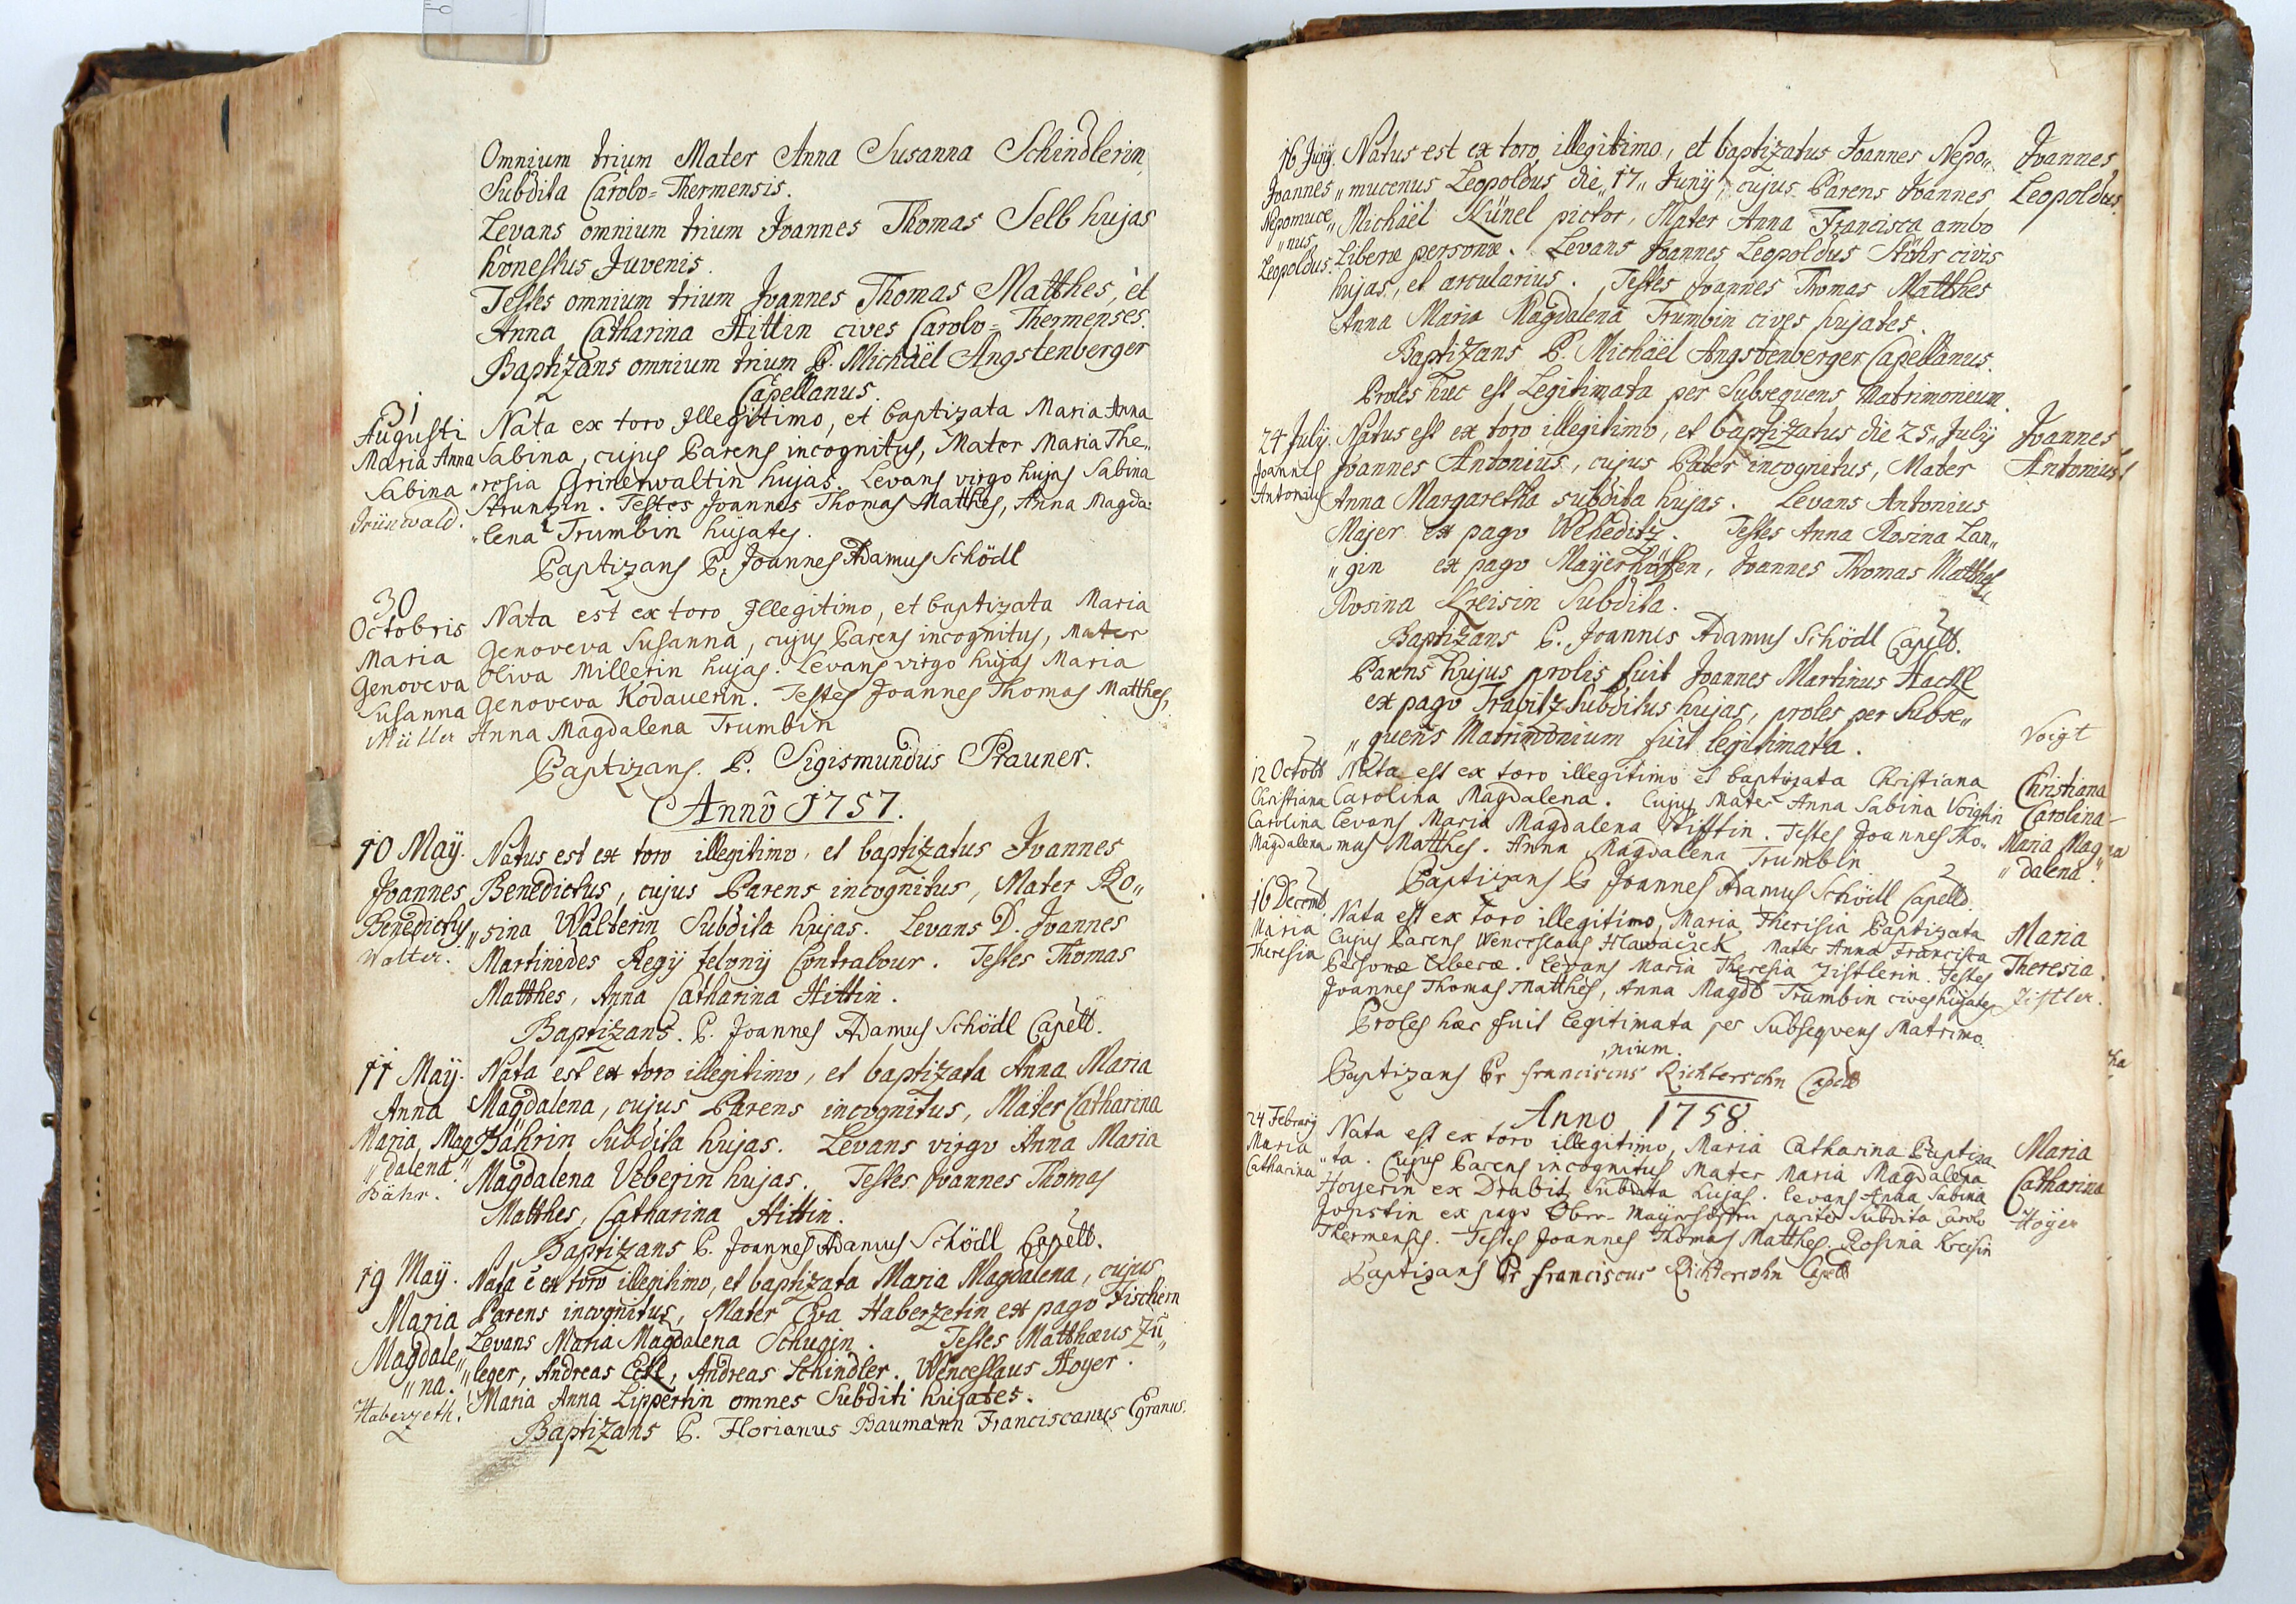 Omnium trium Mater Anna Susanna Schindlerin,
Subdita Carolo=Thermensis.
Levans omnium trium Joannes Thomas Selb hujas
honestus Juvenis.
Testes omnium trium Joannes Thomas Matthes, et
Anna Catharina Hittin cives Carolo=Thermenses.
Baptizans omnium trium P. Michaël Angstenberger
Capellanus.
31
Augusti
Maria Anna
Sabina
Grünwald.
Nata ex toro Illegitimo, et baptizata Maria Anna
Sabina, cujus Parens incognitus, Mater Maria The„
„resia Grinerwaltin hujas. Levans virgo hujas Sabina
Struntzin. Testes Joannes Thomas Matthes, Anna Magda„
„lena Trumbin hujates.
Baptizans P. Joannes Adamus Schödl
30
Octobris
Maria
Genoveva
Susanna
Müller
Nata est ex toro Illegitimo, et baptizata Maria
Genoveva Susanna, cujus Parens incognitus, Mater
Oliva Millerin hujas. Levans virgo hujas Maria
Genoveva Kodauerin. Testes Joannes Thomas Matthes,
Anna Magdalena Trumbin
Baptizans. P. Sigismundus Prauner.
Anno 1757.
10 May.
Joannes
Benedictus
Walter.
Natus est ex toro illegitimo, et baptizatus Joannes
Benedictus, cujus Parens incognitus, Mater Ro„
„sina Walterin Subdita hujas. Levans D. Joannes
Martinides Regij telonij Contralour. Testes Thomas
Matthes, Anna Catharina Hittin.
Baptizans. P. Joannes Adamus Schödl Capell.
11 May.
Anna
Maria Mag
„dalena„
Bähr.
Nata est ex toro illegitimo, et baptizata Anna Maria
Magdalena, cujus Parens incognitus, Mater Catharina
Bährin Subdita hujas. Levans virgo Anna Maria
Magdalena Veberin hujas. Testes Joannes Thomas
Matthes, Catharina Hittin.
Baptizans P. Joannes Adamus Schödl Capell.
19 May.
Maria
Magdale„
„na.
Haberzeth.
Nata ē ex toro illegitimo, et baptizata Maria Magdalena, cujus
Parens incognitus, Mater Eva Haberzetin ex pago Fischern
Levans Maria Magdalena Schugin. Testes Matthæus Zü„
„leger, Andreas Eckl, Andreas Schindler. Wenceslaus Hoyer.
Maria Anna Lippertin omnes Subditi hujates.
Baptizans P. Florianus Baumann Franciscanus Egranus.
16 Junij.
Joannes
Nepomuce„
„nus
Leopoldus.
Natus est ex toro illegitimo, et baptizatus Joannes Nepo„
„mucenus Leopoldus die„ 17„ Junij, cujus Parens Joannes
Michaël Künel pictor, Mater Anna Francisca ambo
Liberæ personæ. Levans Joannes Leopoldus Stöhr civis
hujas, et arcularius. Testes Joannes Thomas Matthes
Anna Maria Magdalena Trumbin cives hujates.
Baptizans P. Michaël Angstenberger Capellanus.
Proles hæc est Legitimata per Subsequens Matrimonium.
Joannes
Leopoldus.
24 July.
Joannes
Antonius
Natus est ex toro illegitimo, et baptizatus die 25„ July
Joannes Antonius, cujus Pater incognitus, Mater
Anna Margaretha subdita hujas. Levans Antonius
Majer ex pago Weheditz. Testes Anna Rosina Lan„
„gin ex pago Mayerhöffen, Joannes Thomas Matthes
Rosina Kreisin Subdita.
Baptizans P. Joannes Adamus Schödl Capell.
Parens hujus prolis fuit Joannes Martinus Hackl
ex pago Trabitz Subditus hujas, proles per Subse„
„quens Matrimonium fuit legitimata.
Joannes
Antonius
12 Octobr
Christiana
Carolina
Magdalena
Nata est ex toro illegitimo et baptizata Christiana
Carolina Magdalena. Cujus Mater Anna Sabina Voigtin
Levans Maria Magdalena Stifftin. Testes Joannes Tho„
mas Matthes. Anna Magdalena Trumbin
Baptizans P Joannes Adamus Schödl Capell.
Voigt
Christiana
Carolina
Maria Mag
„dalena.
16 Decemb
Maria
Theresia
Nata est ex toro illegitimo, Maria Therisia Baptizata
Cujus Parens Wenceslaus Hlawaczek, Mater Anna Francisca
Personæ Liberæ. Levans Maria Theresia Zistlerin. Testes
Joannes Thomas Matthes, Anna Magdl Trumbin cives hujates
Proles hæc fuit legitimata per Subsequens Matrimo
nium.
Baptizans Pr Franciscus Richtersohn Capell
Maria
Theresia.
Zistler.
Anno 1758
24 February
Maria
Catharina
Nata est ex toro illegitimo, Maria Catharina Baptiza
„ta. Cujus Parens incognitus Mater Maria Magdalena
Hoyerin ex Drabitz Subdita hujas. Levans Anna Sabina
ex pago Ober-Mayerhöffen pariter Subdita Carolo
Thermensis. Testes Joannes Thomas Matthes. Rosina Kreisin
Baptizans Pr Franciscus Richtersohn Capell
Maria
Catharina
Hoyer